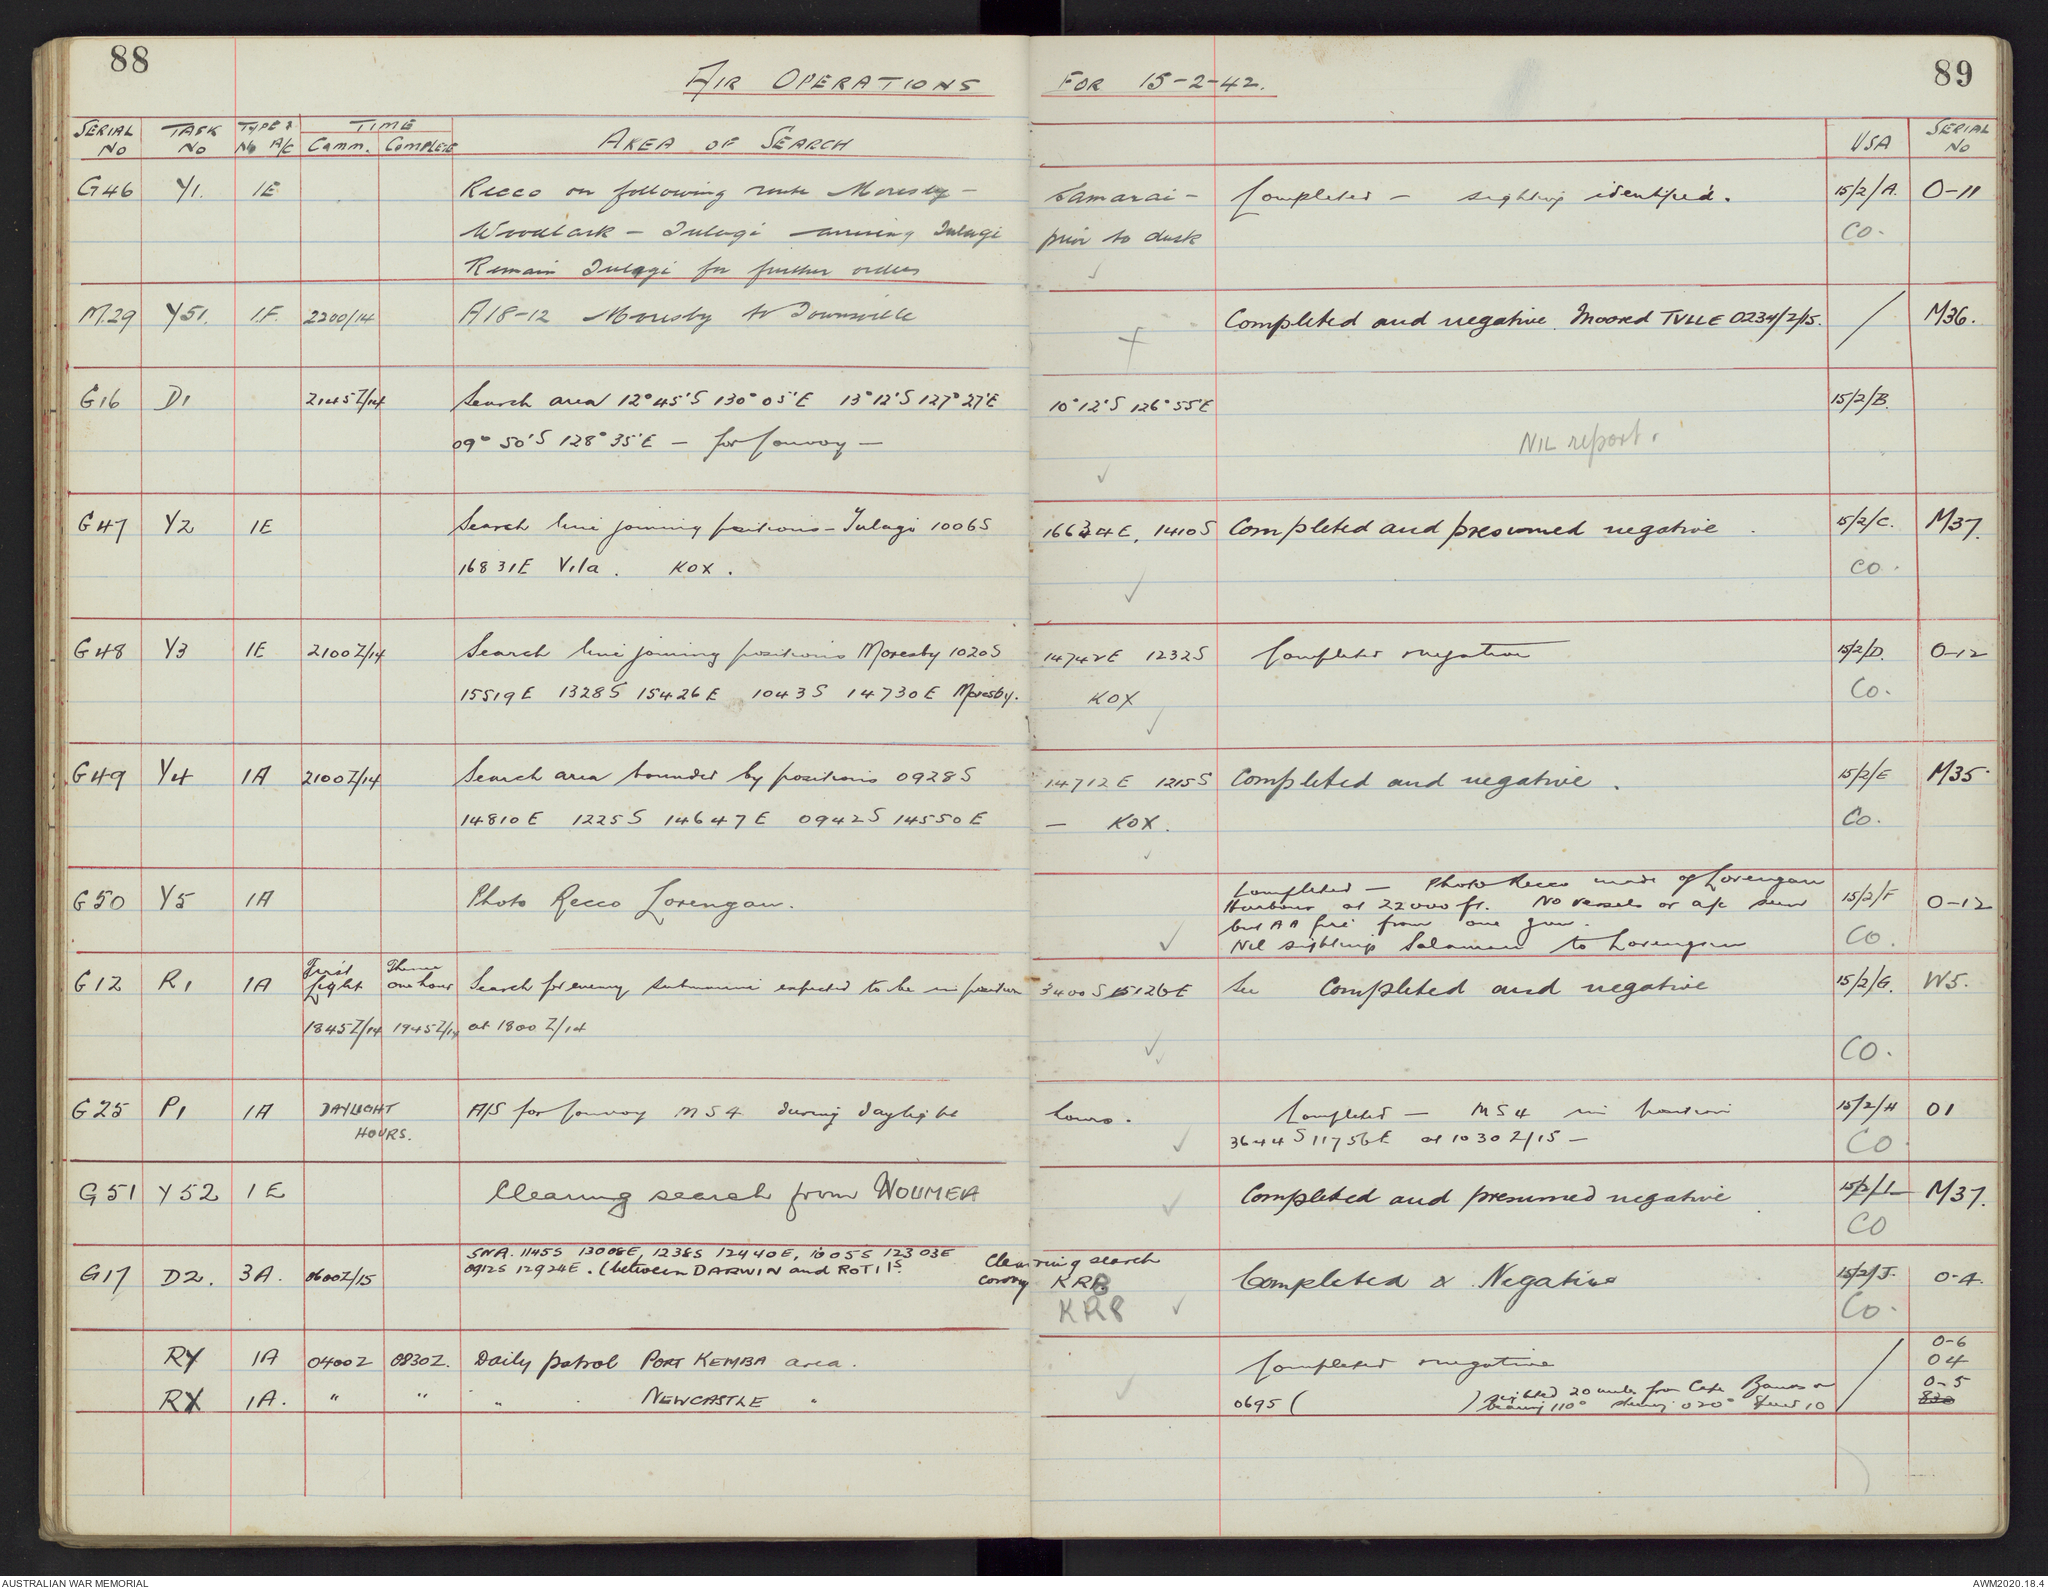 88
AIR OPERATIONS FOR 15-2-42.
89
SERIAL No TASK No TYPE & No A/C TIME Comm. Complete AREA OF SEARCH USA SERIAL No
G46 Y1. 1E Recco on following route Moresby - Samarai - Completed - sighting identified. 15/2/A. O-11
Woodlark - Tulagi arriving Tulagi prior to dusk CO.
Remain Tulagi for further orders ✓
M.29 Y51. 1.F. 2200/14 A18-12 Moresby to Townsville Completed and negative. Moored TVLLE 0234/2/15. / M36.
G16 D1 2145Z/14 Search area 12°45'S 130°05'E 13°12'S 127°27'E 10°12'S 126°55'E 15/2/B.
09°50'S 128°35'E - for Convoy - NIL report.
✓
G47 Y2 1E Search line joining positions - Tulagi 1006S 16634E, 1410S Completed and presumed negative. 15/2/C. M37.
16831E Vila. KOX. ✓ CO.
G48 Y3 1E 2100Z/14 Search line joining positions Moresby 1020S 14742E 1232S Completed negative 15/2/D. O-12
15519E 1328S 15426E 1043S 14730E Moresby. KOX ✓ CO.
G49 Y4 1A 2100Z/14 Search area bounded by positions 0928S 14712E 1215S Completed and negative. 15/2/E M35
14810E 1225S 14647E 0942S 14550E - KOX. ✓ CO.
G50 Y5 1A Photo Recco Lorengau. Completed - Photo Recco made of Lorengau 15/2/F O-12
Harbour at 22000 ft. No vessels or a/c seen
but AA fire from one gun. ✓ CO.
Nil sightings Salamaua to Lorengau
G12 R1 1A First Light Thence one hour Search for enemy submarine expected to be in position 3400S 15126E See Completed and negative 15/2/G. W5.
1845Z/14 1945Z/14 at 1800Z/14 ✓ CO.
G25 P1 1A DAYLIGHT HOURS. A/S for Convoy MS4 during daylight hours. Completed - MS4 in position 15/2/H O1
✓ 3644S 11756E at 1030Z/15 - CO
G51 Y52 1E Clearing search from NOUMEA ✓ Completed and presumed negative 15/2/I M37.
CO
G17 D2. 3A. 0600Z/15 SNA. 1145S 13008E, 1238S 12440E, 1005S 12303E Clearing search
0912S 12924E. (between DARWIN and ROTI Is convoy KRB Completed & Negative 15/2/J. O-4.
KR8 ✓ CO.
RY 1A 0400Z 0830Z. Daily patrol PORT KEMBA area. Completed negative / O-6
O4
RX 1A. " " " NEWCASTLE " ✓ 0695 ( ) sighted 20 miles from Cape Banks on O-5
bearing 110° steering 020° Speed 10
AUSTRALIAN WAR MEMORIAL
AWM2020.18.4